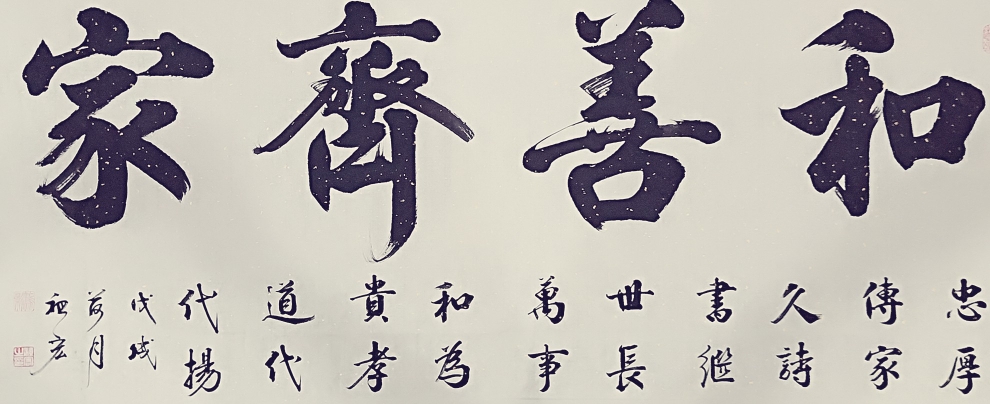 和善齊家
忠厚
傳家
久詩
書繼
世長
萬事
和為
貴孝
道代
代揚
戊戌
荷月
宏